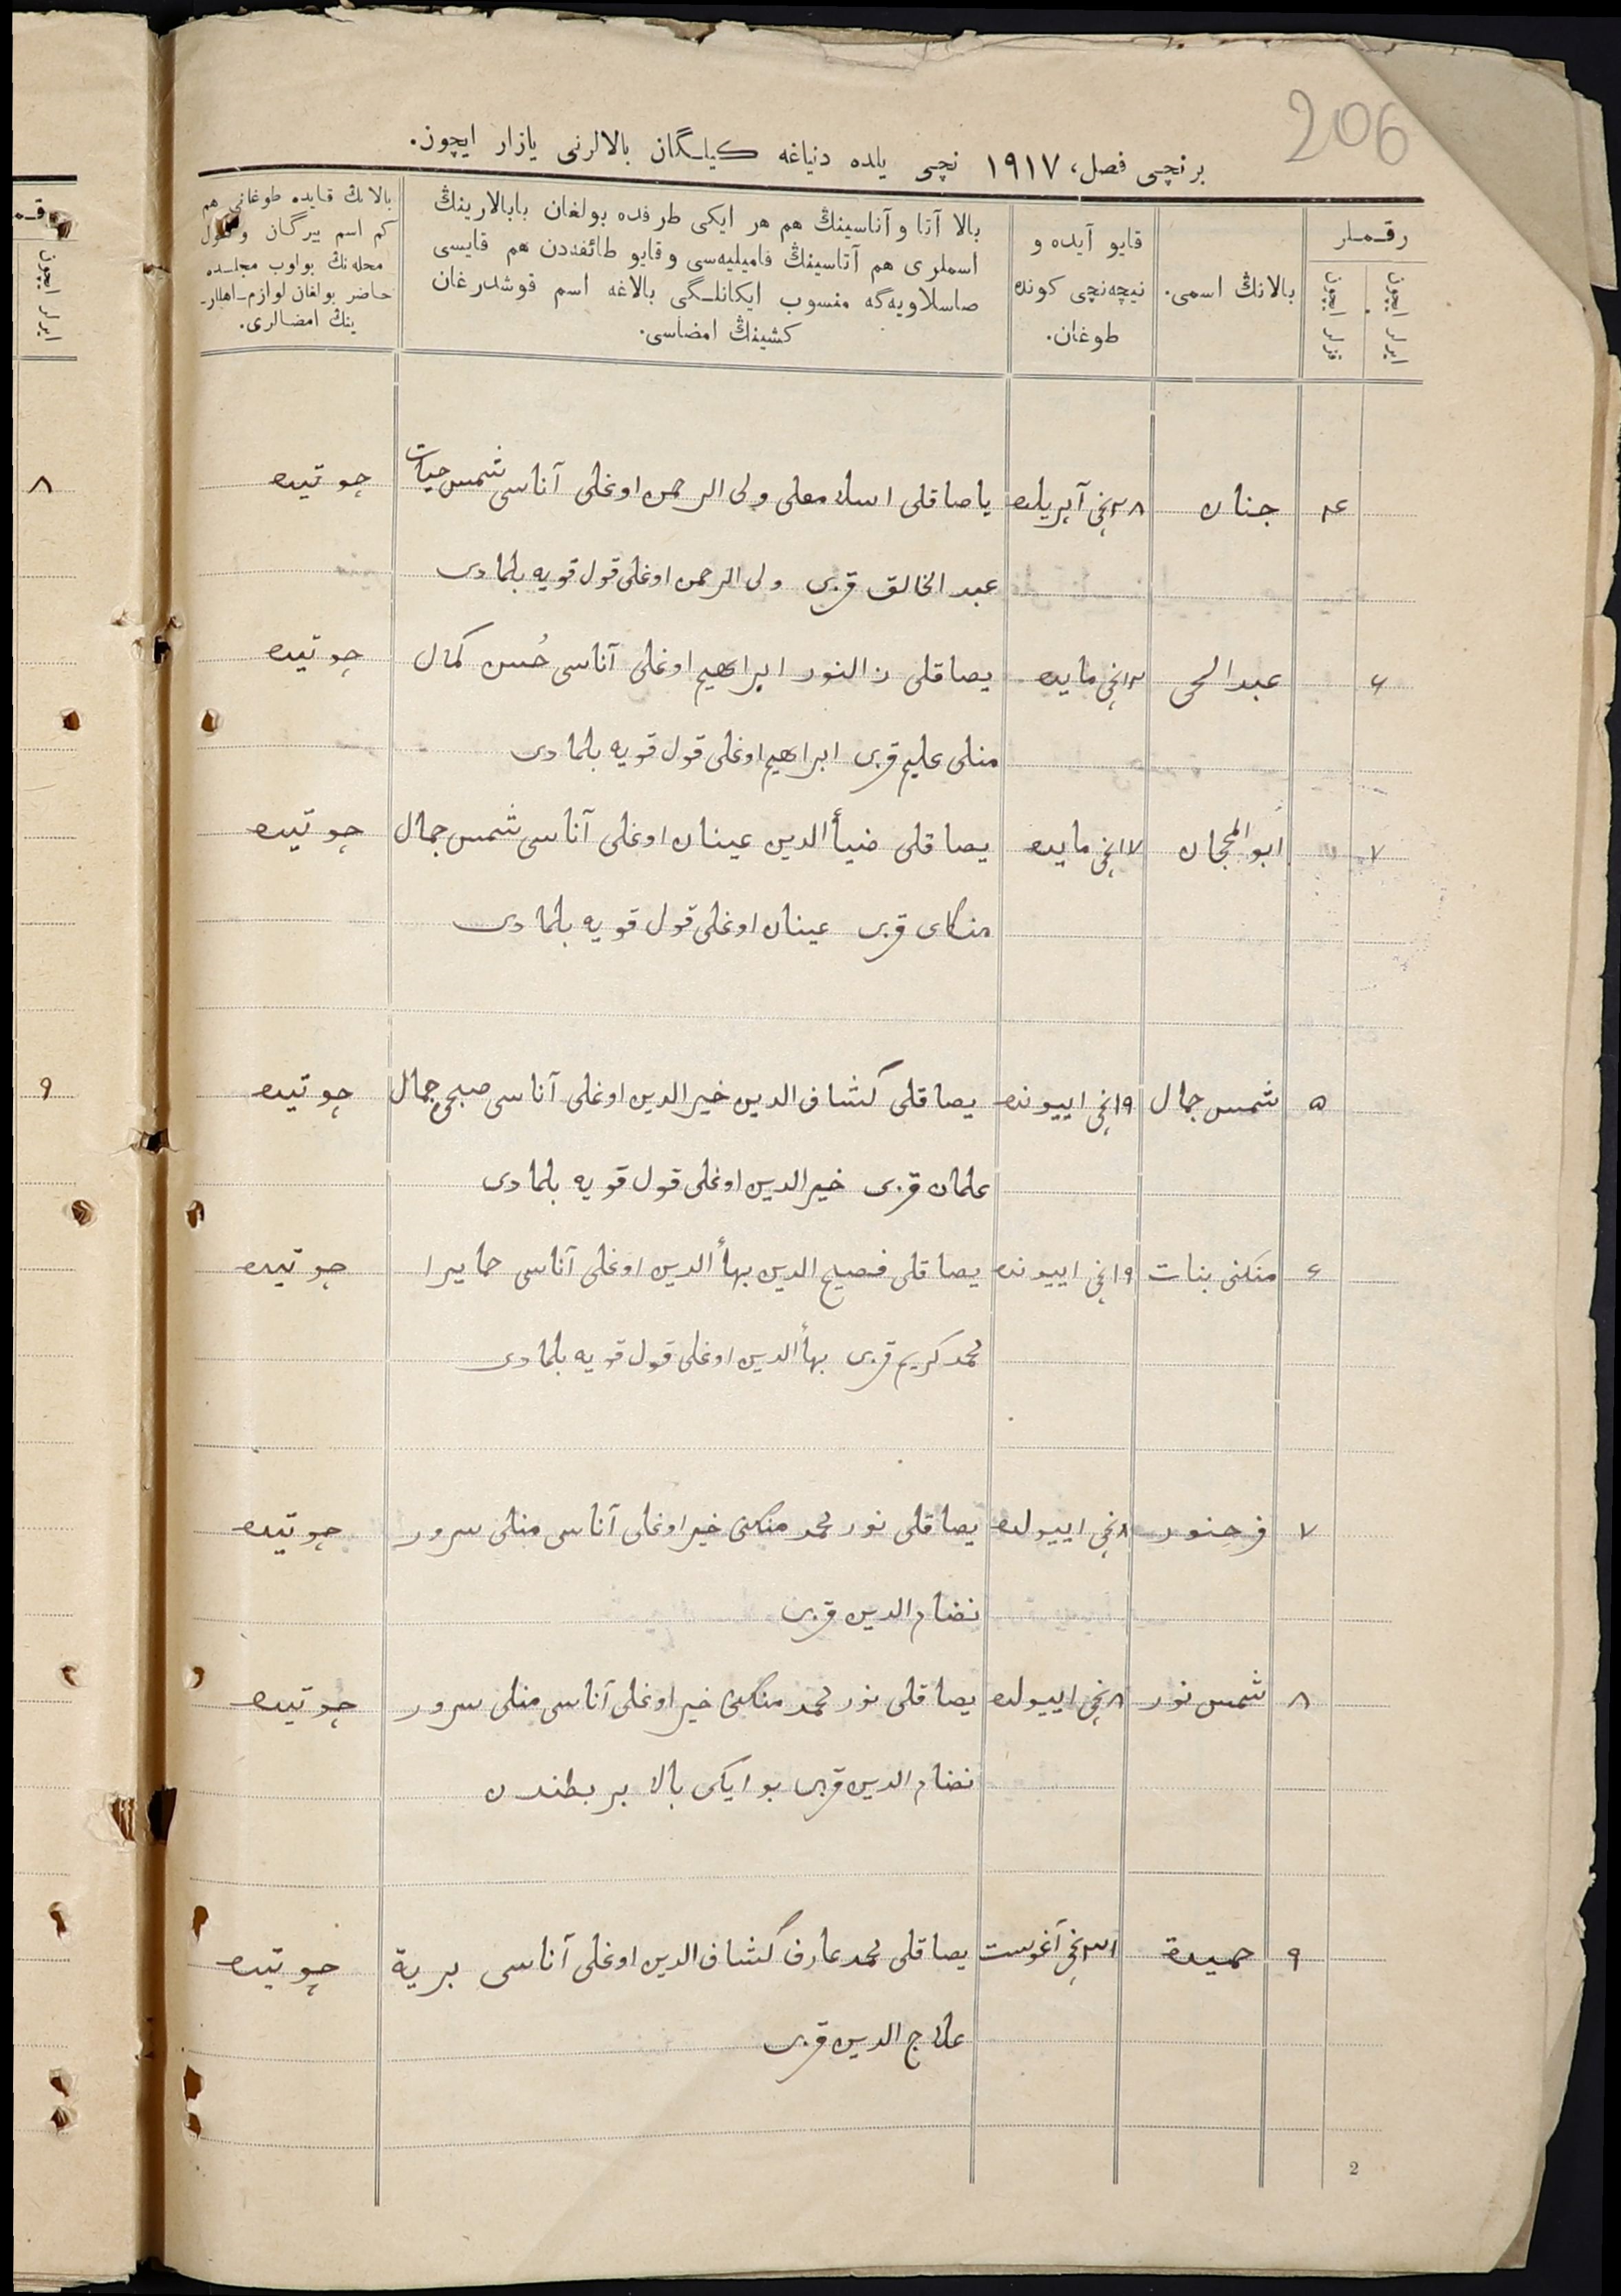 206
برنچی فصل، ١٩١٧ نچی یلده دنیاغه کیلگان بالالرنی یازار ایچون.
رقملر
ایرلر ایچون
قزلر ایچون
بالانڭ اسمی.
قایو آیده و
نیچه‌نچی کونده
طوغان.
بالا آتا و آناسینڭ هم هر ایکی طرفده بولغان بابالارینڭ
اسملری هم آتاسینڭ فامیلیه‌سی و قایو طائفه‌دن هم قایسی
صاسلاویه‌گه منسوب ایکانلگی بالاغه اسم قوشدرغان
کشینڭ امضاسی.
بالانڭ قایده طوغانی هم
کم اسم بیرگان و شول
محله‌نڭ بولوب مجلسده
حاضر بولغان لوازم اهللر
ینڭ امضالری.
٤ جنان ٢٨نچی آپریلده یاصاقلی اسلامعلی ولی الرحمن اوغلی آناسی شمس حیات چوتیده
عبد الخالق قزی ولی الرحمن اوغلی قول قویه بلمادی
٦ عبدالحی ١٢نچی مایده یصاقلی ذالنور ابراهیم اوغلی آناسی حُسن کمال چوتیده
منلی علیم قزی ابراهیم اوغلی قول قویه بلمادی
٧ ابوالمجان ١٧نچی مایده یصاقلی ضیأالدین عینان اوغلی آناسی شمس جمال چوتیده
منکای قزی عینان اوغلی قول قویه بلمادی
٥ شمس جمال ١٩نچی اییونده یصاقلی کشاف الدین خیرالدین اوغلی آناسی صبحی جمال چوتیده
علمان قزی خیرالدین اوغلی قول قویه بلمادی
٦ منکنی بنات ١٩نچی اییونده یصاقلی فصیح الدین بهأالدین اوغلی آناسی حمایرا چوتیده
محمد کریم قزی بهأالدین اوغلی قول قویه بلمادی
٧ فرحنور ٨نچی اییولده یصاقلی نور محمد منکنی خیر اوغلی آناسی منلی سرور چوتیده
نضام الدین قزی
٨ شمس نور ٨نچی اییولده یصاقلی نور محمد منکنی خیر اوغلی آناسی منلی سرور چوتیده
نضام الدین قزی بو ایکی بالا بر بطندن
٩ حمیده ٣١نچی آغوست یصاقلی محمد عارف کشاف الدین اوغلی آناسی بریة چوتیده
علاج الدین قزی
2
ایرلر ایچون
٨
٩